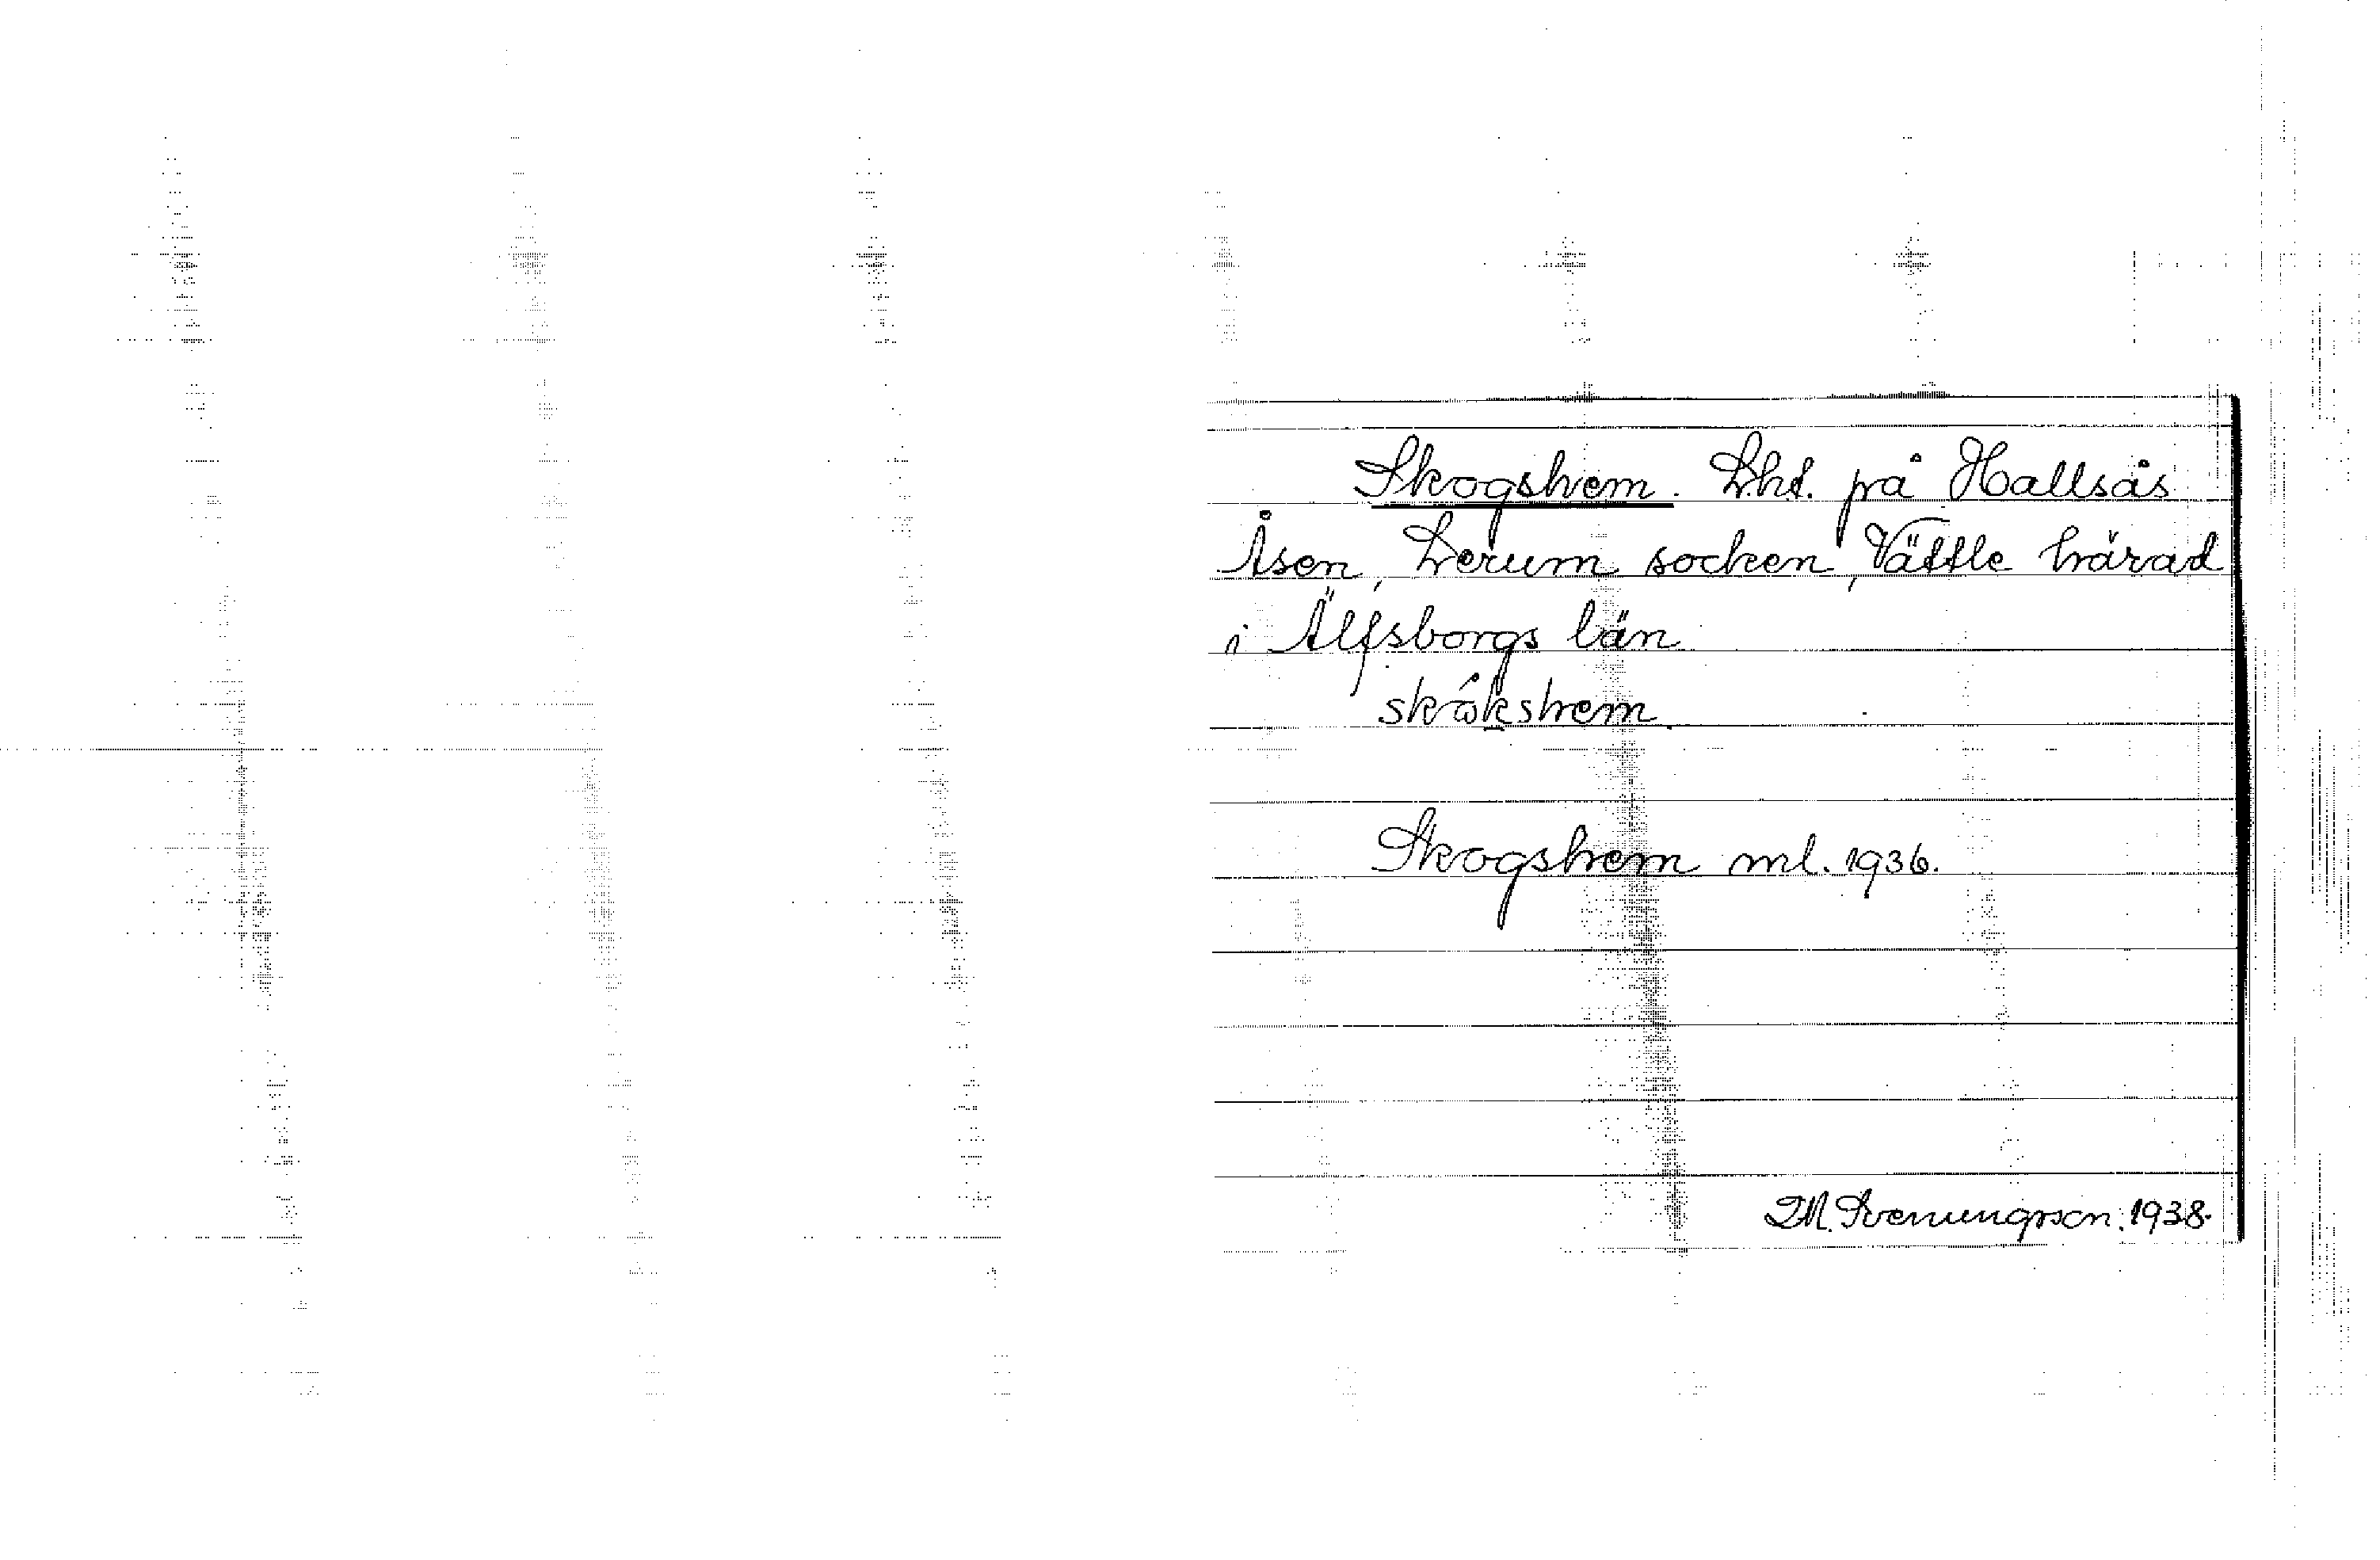 Skogshem. Lht. på Hallsås
Åsen, Lerum socken, Vättle härad
i Älfsborgs län
skókshem
Skogshem ml. 1936.
M. Svenungsson. 1938.